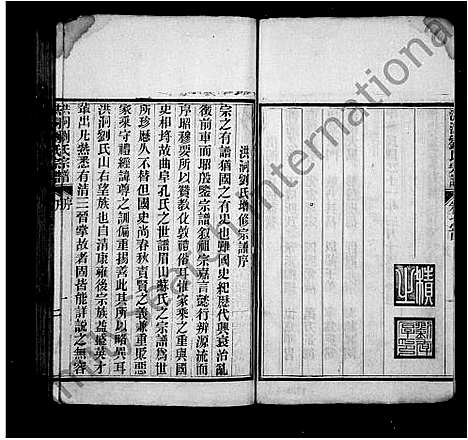 洪洞劉氏增修宗譜序
宗之有譜猶國之有史也雖國史紀歷代興衰治亂
後前車而昭殷鑒宗譜叙祖宗嘉言懿行辨源流而
序昭穆要所以贊教化敦禮俗耳惟家乘之重與國
史相埒故曲阜孔氏之世譜眉山蘇氏之宗譜爲世
所珍歷久不替但國史尚春秋責賢之義兼重貶惡
家乘守禮經諱尊之訓偏重揚善此其所以略異耳
洪洞劉氏山右望族也自清康雍後宗族益盛英才
輩出凡熟悉有清三晉掌故者固皆能詳說之無容
洪洞劉氏宗譜
序